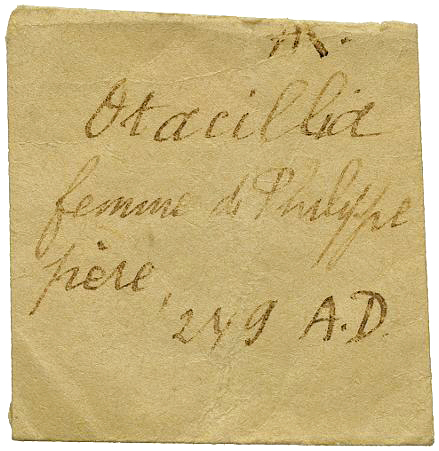 AR.
Otacillia
femme de Philippe
père,
249 A.D.